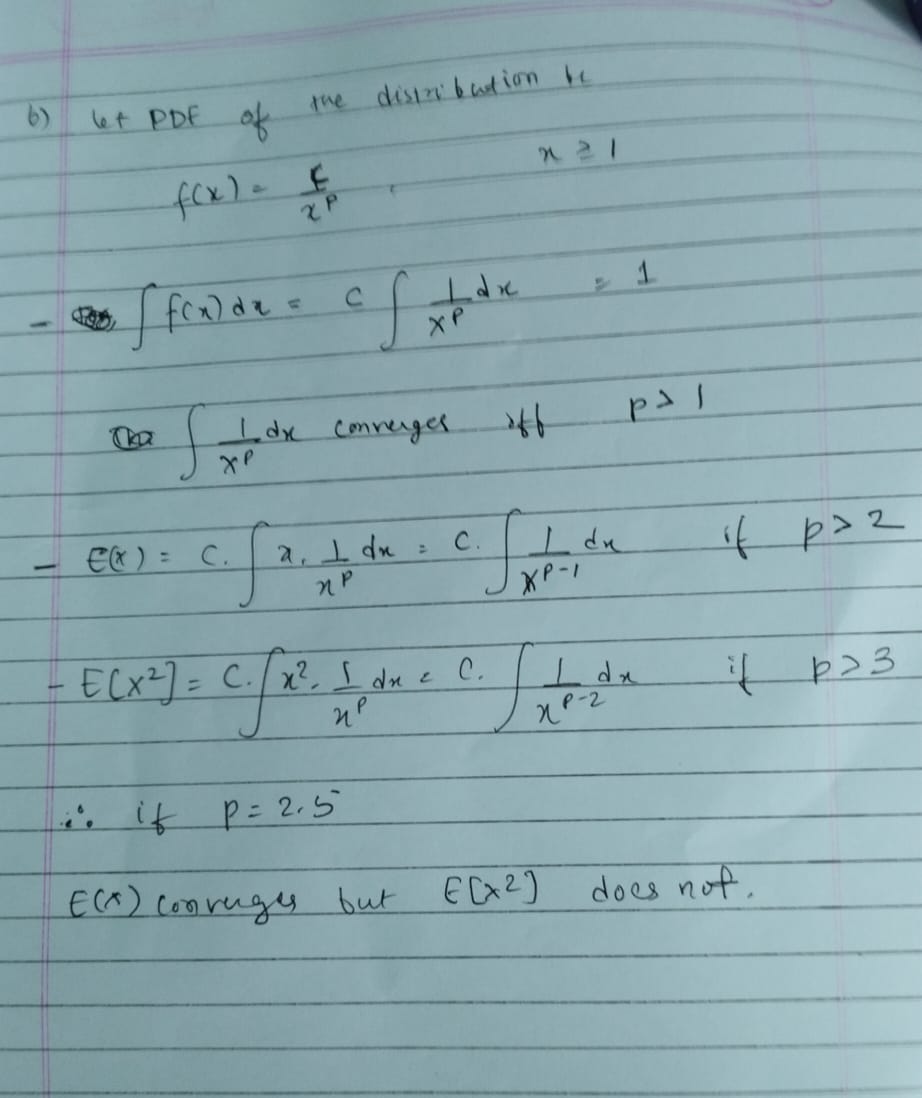 b) let PDF of the distribution be
f(x) = c/x^p , x ≥ 1
- ∫ f(x) dx = c ∫ 1/x^p dx = 1
∫ 1/x^p dx converges iff p > 1
- E(x) = C. ∫ x. 1/x^p dx = C. ∫ 1/x^p-1 dx if p > 2
- E[x²] = C. ∫ x². 1/x^p dx = C. ∫ 1/x^p-2 dx if p > 3
∴ if p = 2.5
E(x) converges but E[x²] does not.